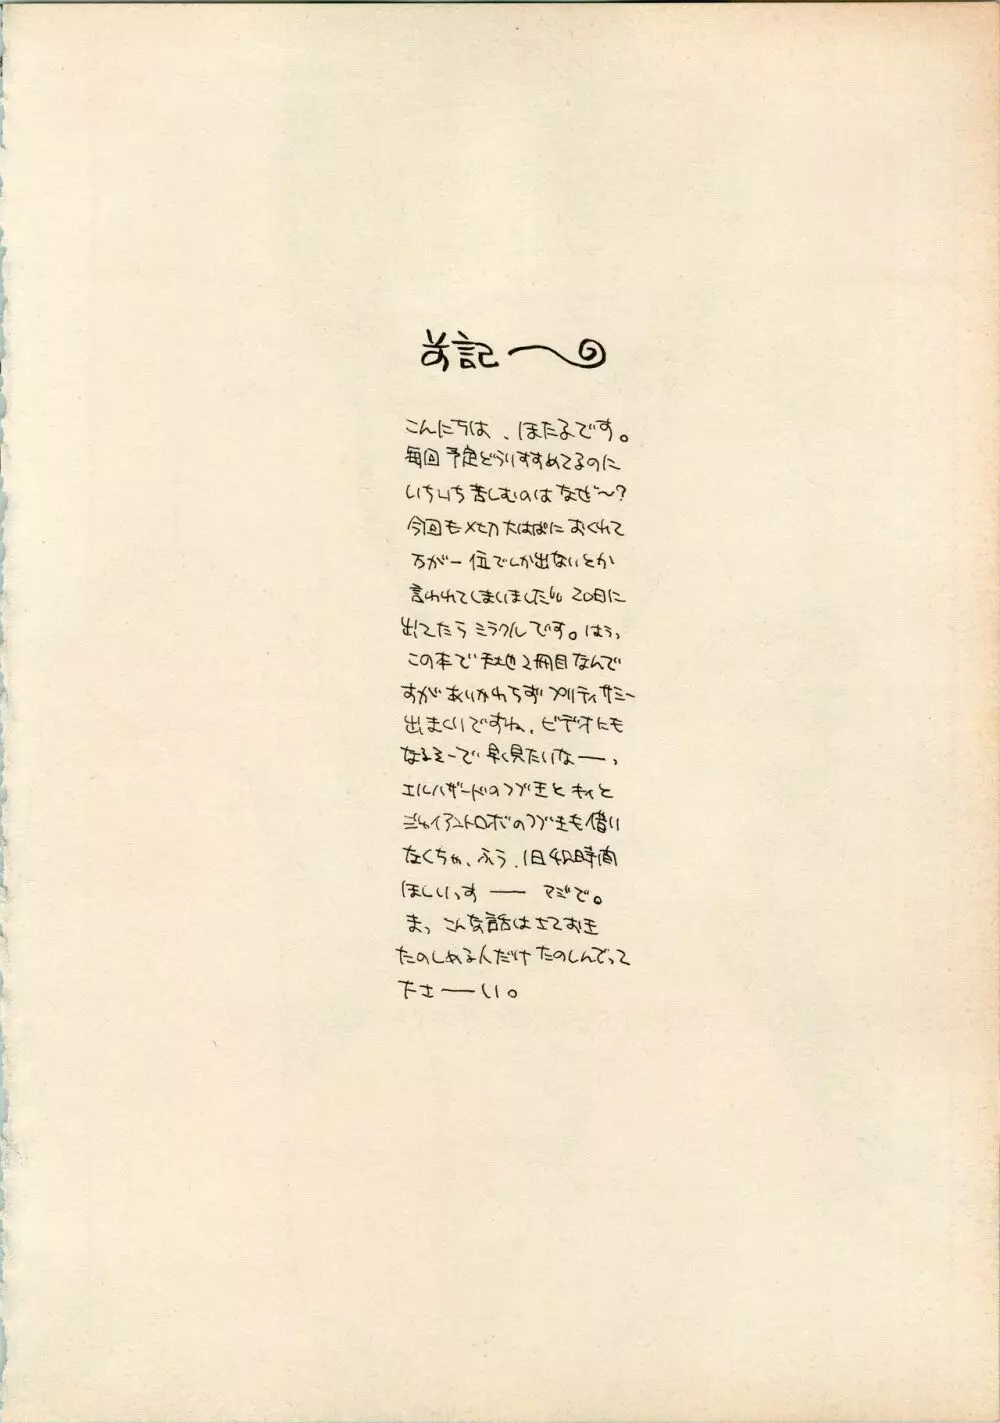 前記〜
こんにちは、ほたるです。
毎回予定どうりすすめてるのに
いちいち苦しむのはなぜ〜？
今回も〆切大はばにおくれて
万が一位でしか出ないとか
言われてしまいました 20日に
出てたらミラクルです。はぅっ
この本で天地2冊目なんで
すがあいかわらずプリティサミー
出まくりですね、ビデオにも
なるそーで早く見たいなーっ
エルハザードのつづきと
ジャイアントロボのつづきも借り
なくちゃ、ふう、1日42時間
ほしいっすーー マジで。
まっ こんな話はさておき
たのしめる人だけたのしんでって
ださーーい。